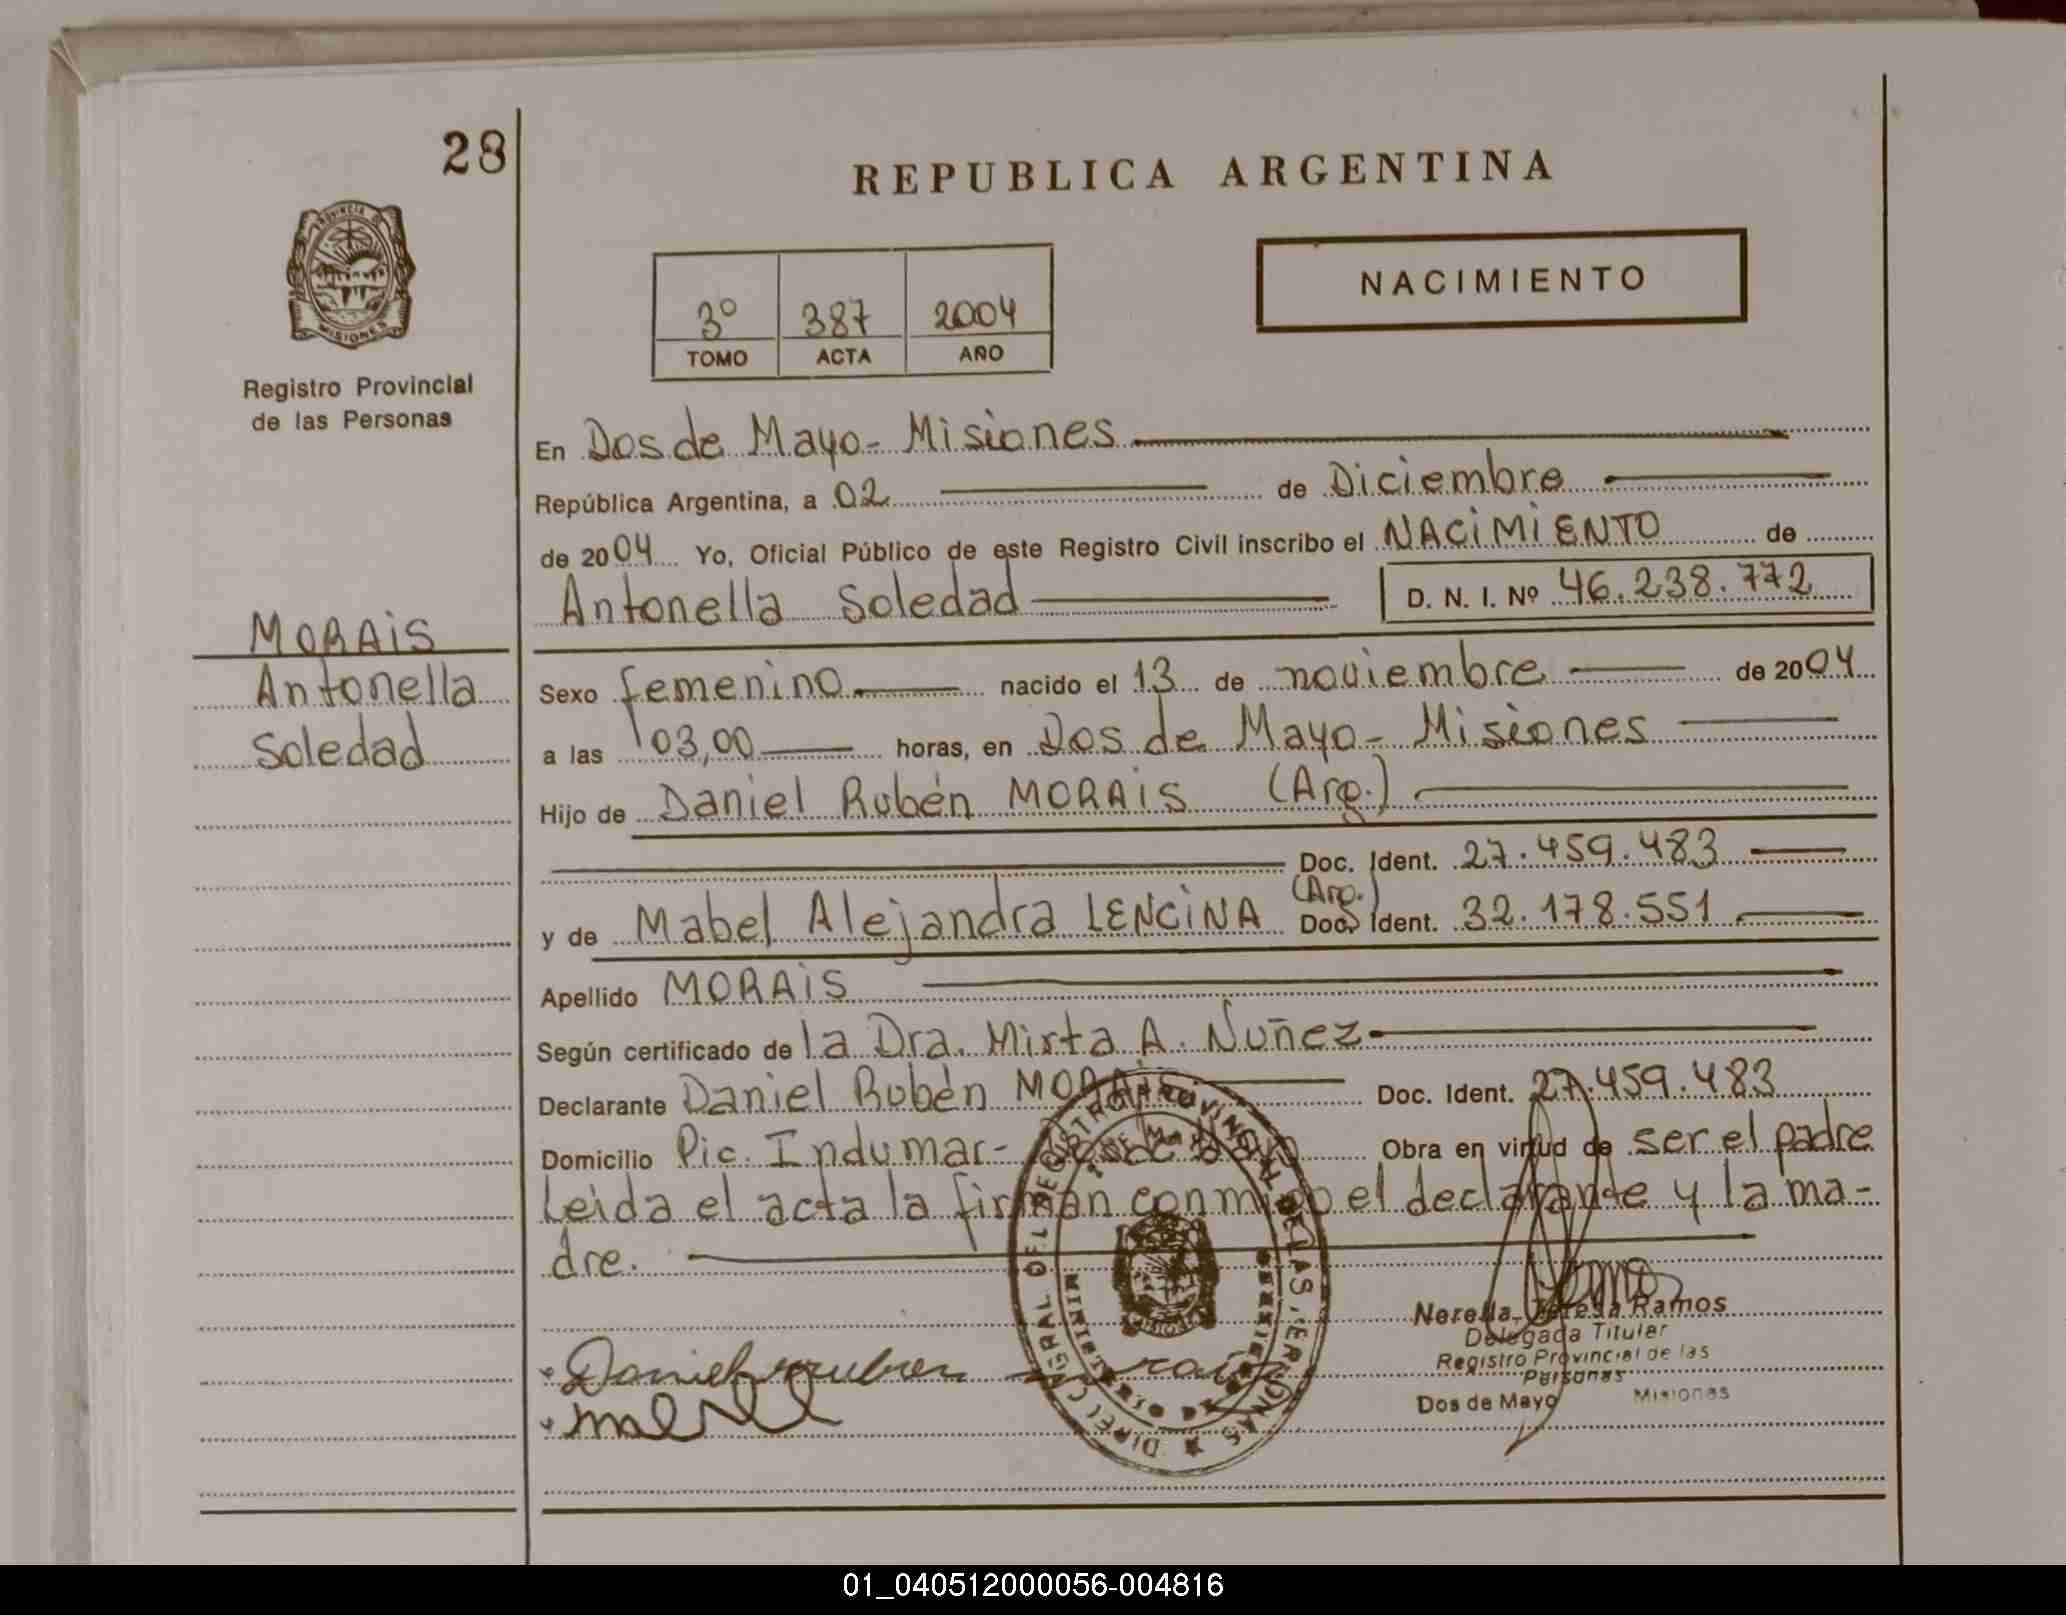 28
REPUBLICA ARGENTINA
PROVINCIA DE
MISIONES
Registro Provincial
de las Personas
NACIMIENTO
3º 387 2004
TOMO ACTA AÑO
En Dos de Mayo - Misiones
República Argentina, a 02 de Diciembre
de 2004 Yo, Oficial Público de este Registro Civil inscribo el NACIMIENTO de
Antonella Soledad D. N. I. Nº 46.238.772
MORAIS
Antonella
Soledad
Sexo femenino nacido el 13 de noviembre de 2004
a las 03,00 horas, en Dos de Mayo - Misiones
Hijo de Daniel Rubén MORAIS (Arg.)
Doc. Ident. 27.459.483
y de Mabel Alejandra LENCINA (Arg.) Doc. Ident. 32.178.551
Apellido MORAIS
Según certificado de la Dra. Mirta A. Nuñez
Declarante Daniel Rubén MORAIS Doc. Ident. 27.459.483
Domicilio Pic. Indumar - Dos de Mayo Obra en virtud de ser el padre
Leida el acta la firman conmigo el declarante y la ma-
dre.
Daniel ruben
Norella Teresa Ramos
Delegada Titular
Registro Provincial de las
Personas
Dos de Mayo Misiones
01_040512000056-004816